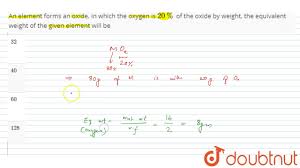 An element forms an oxide, in which the oxygen is 20% of the oxide by weight, the equivalent
weight of the given element will be
32
40
60
128
M Ox
80% 20%
⇒ 80g of M is with 20g of O2
Eq wt = Mol wt / nf = 16 / 2 = 8gm
(oxygen)
doubtnut